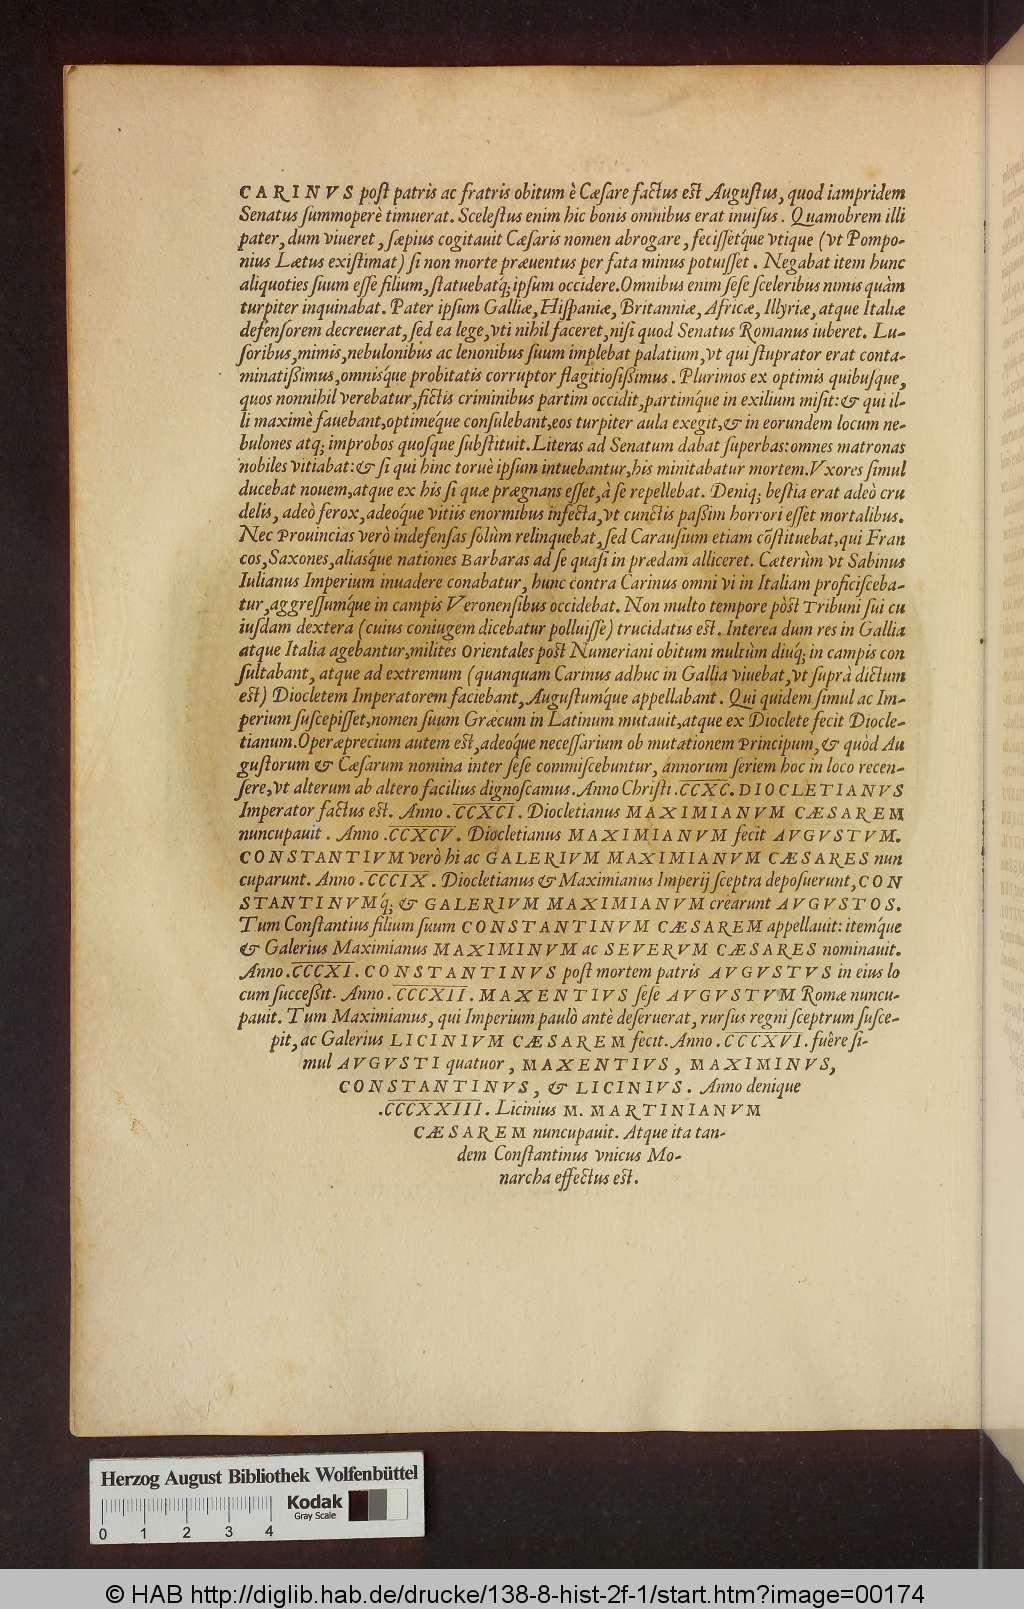 CARINVS poſt patris ac fratris obitum è Cæſare factus eſt Auguſtus, quod iampridem
Senatus ſummoperè timuerat. Sceleſtus enim hic bonis omnibus erat inuiſus. Quamobrem illi
pater, dum viueret, ſæpius cogitauit Cæſaris nomen abrogare, feciſſetq́ue vtique (vt Pompo-
nius Lætus exiſtimat) ſi non morte præuentus per fata minus potuiſſet. Negabat item hunc
aliquoties ſuum eſſe filium, ſtatuebatq́; ipſum occidere. Omnibus enim ſeſe ſceleribus nimis quàm
turpiter inquinabat. Pater ipſum Galliæ, Hiſpaniæ, Britanniæ, Africæ, Illyriæ, atque Italiæ
defenſorem decreuerat, ſed ea lege, vti nihil faceret, niſi quod Senatus Romanus iuberet. Lu-
ſoribus, mimis, nebulonibus ac lenonibus ſuum implebat palatium, vt qui ſtuprator erat conta-
minatißimus, omnisq́ue probitatis corruptor flagitioſißimus. Plurimos ex optimis quibuſque,
quos nonnihil verebatur, fictis criminibus partim occidit, partimq́ue in exilium miſit: & qui il-
li maximè fauebant, optimeq́ue conſulebant, eos turpiter aula exegit, & in eorundem locum ne-
bulones atq; improbos quoſque ſubſtituit. Literas ad Senatum dabat ſuperbas: omnes matronas
nobiles vitiabat: & ſi qui hinc toruè ipſum intuebantur, his minitabatur mortem. Vxores ſimul
ducebat nouem, atque ex his ſi quæ prægnans eſſet, à ſe repellebat. Deniq; beſtia erat adeò cru
delis, adeò ferox, adeoq́ue vitiis enormibus infecta, vt cunctis paßim horrori eſſet mortalibus.
Nec Prouincias verò indefenſas ſolùm relinquebat, ſed Carauſium etiam cõſtituebat, qui Fran
cos, Saxones, aliasq́ue nationes Barbaras ad ſe quaſi in prædam alliceret. Cæterùm vt Sabinus
Iulianus Imperium inuadere conabatur, hunc contra Carinus omni vi in Italiam proficiſceba-
tur, aggreſſumq́ue in campis Veronenſibus occidebat. Non multo tempore pòſt Tribuni ſui cu
iuſdam dextera (cuius coniugem dicebatur polluiſſe) trucidatus eſt. Interea dum res in Gallia
atque Italia agebantur, milites Orientales poſt Numeriani obitum multùm diuq́; in campis con
ſultabant, atque ad extremum (quanquam Carinus adhuc in Gallia viuebat, vt ſuprà dictum
eſt) Diocletem Imperatorem faciebant, Auguſtumq́ue appellabant. Qui quidem ſimul ac Im-
perium ſuſcepiſſet, nomen ſuum Græcum in Latinum mutauit, atque ex Dioclete fecit Diocle-
tianum. Operæprecium autem eſt, adeoq́ue neceſſarium ob mutationem Principum, & quòd Au
guſtorum & Cæſarum nomina inter ſeſe commiſcebuntur, annorum ſeriem hoc in loco recen-
ſere, vt alterum ab altero facilius dignoſcamus. Anno Chriſti .CCXC. DIOCLETIANVS
Imperator factus eſt. Anno .CCXCI. Diocletianus MAXIMIANVM CÆSAREM
nuncupauit. Anno .CCXCV. Diocletianus MAXIMIANVM fecit AVGVSTVM.
CONSTANTIVM verò hi ac GALERIVM MAXIMIANVM CÆSARES nun
cuparunt. Anno .CCCIX. Diocletianus & Maximianus Imperij ſceptra depoſuerunt, CON
STANTINVMq́; & GALERIVM MAXIMIANVM creârunt AVGVSTOS.
Tum Conſtantius filium ſuum CONSTANTINVM CÆSAREM appellauit: itemq́ue
& Galerius Maximianus MAXIMINVM ac SEVERVM CÆSARES nominauit.
Anno .CCCXI. CONSTANTINVS poſt mortem patris AVGVSTVS in eius lo
cum ſucceßit. Anno .CCCXII. MAXENTIVS ſeſe AVGVSTVM Romæ nuncu-
pauit. Tum Maximianus, qui Imperium paulò antè deſeruerat, rurſus regni ſceptrum ſuſce-
pit, ac Galerius LICINIVM CÆSAREM fecit. Anno .CCCXVI. fuêre ſi-
mul AVGVSTI quatuor, MAXENTIVS, MAXIMINVS,
CONSTANTINVS, & LICINIVS. Anno denique
.CCCXXIII. Licinius M. MARTINIANVM
CÆSAREM nuncupauit. Atque ita tan-
dem Conſtantinus vnicus Mo-
narcha effectus eſt.
Herzog August Bibliothek Wolfenbüttel
Kodak
Gray Scale
0 1 2 3 4
© HAB http://diglib.hab.de/drucke/138-8-hist-2f-1/start.htm?image=00174